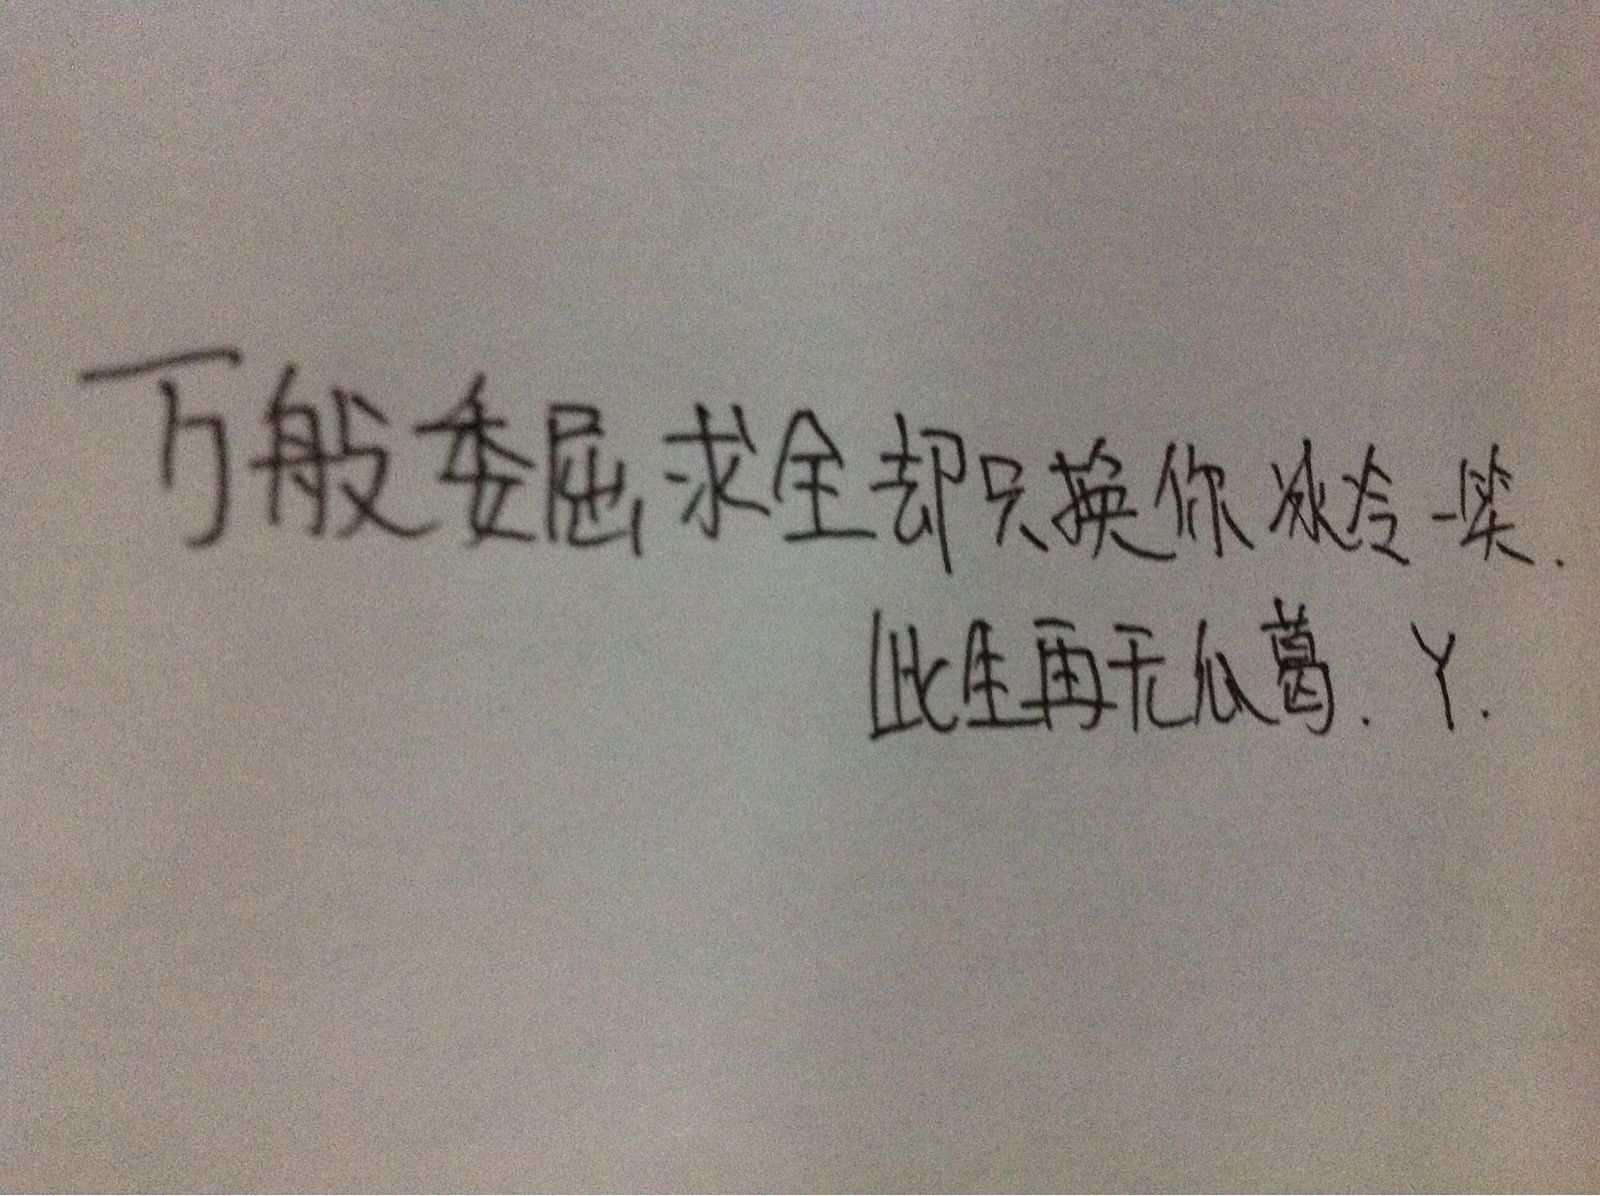 万般委屈求全却只换你冰冷一笑.
此生再无瓜葛. Y.